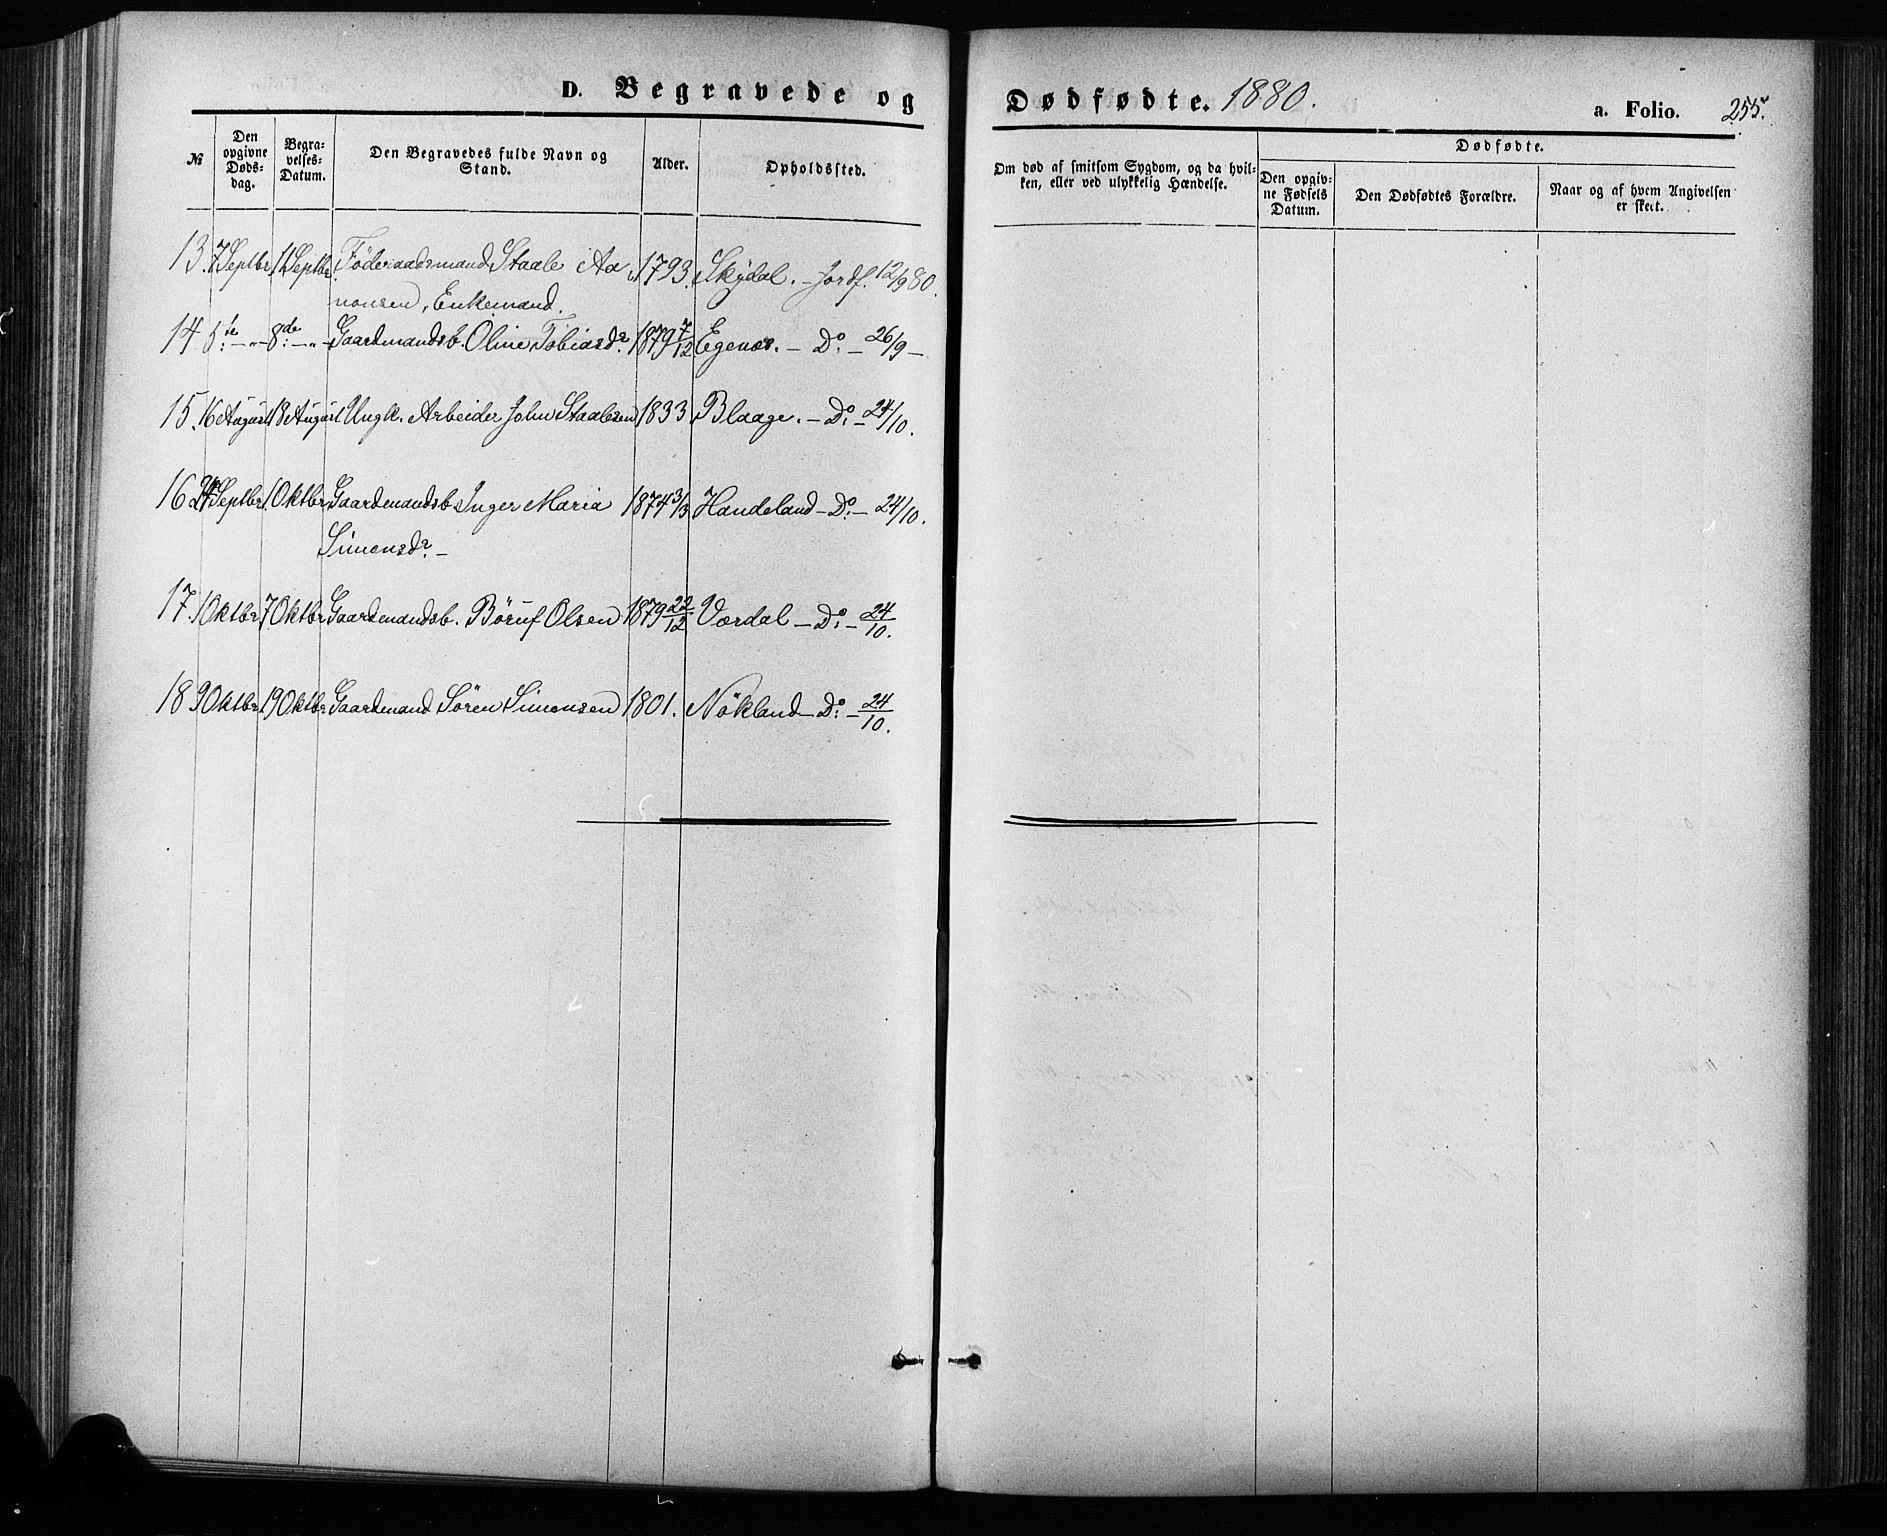 D. Begravede og Dødfødte. 1880. a. Folio. 255.
№ Den opgivne Døds-dag. Begra-velses-Datum. Den Begravedes fulde Navn og Stand. Alder. Opholdssted. Om død af smitsom Sygdom, og da hvil-ken, eller ved ulykkelig Hændelse. Dødfødte. Den opgiv-ne Fødsels Datum. Den Dødfødtes Forældre. Naar og af hvem Angivelsen er skeet.
13. 7 Septbr. 11 Septbr. Föderaadsmand Staale Aa 1793. Skydal. - Jordf. 12/9 80.
nonsen, Enkemand.
14. 5te - " - 8de - " - Gaardmandsb. Oline Tobiasdr. 1879 7/12 Egenæs. - Do. - 26/9 -
15. 16 August 18 August Ungk. Arbeider John Staalesen 1833. Blaage. - Do. - 24/10.
16. 24 Septbr. 1 Oktbr. Gaardmandsb. Inger Maria 1874 3/3 Handeland - Do. - 24/10.
Simensdr. -
17. 1 Oktbr. 7 Oktbr. Gaardmandsb. Böruf Olsen 1879 22/12 Værdal - Do. - 24/10.
18. 9 Oktbr. 19 Oktbr. Gaardmand Sören Simensen 1801. Nökland - Do. - 24/10.